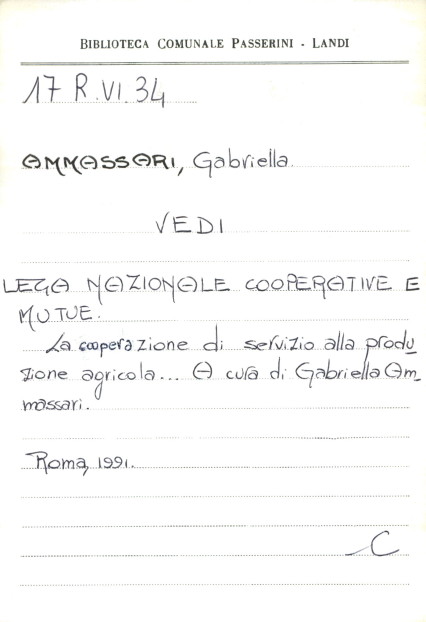 BIBLIOTECA COMUNALE PASSERINI - LANDI
17 R.VI.34
AMMASSARI, Gabriella
VEDI
LEGA NAZIONALE COOPERATIVE E
MUTUE.
La cooperazione di servizio alla produ_
zione agricola... A cura di Gabriella Am_
massari.
Roma, 1991.
C